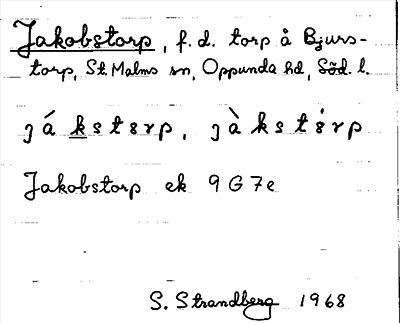 Jakobstorp, f.d. torp å Bjurs-
torp, St. Malms sn, Oppunda hd, Söd. l.
Jakobstorp ek 9G7e
S. Strandberg 1968